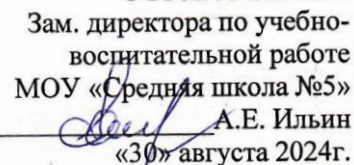 Зам. директора по учебно-
воспитательной работе
МОУ «Средняя школа №5»
А.Е. Ильин
«30» августа 2024г.